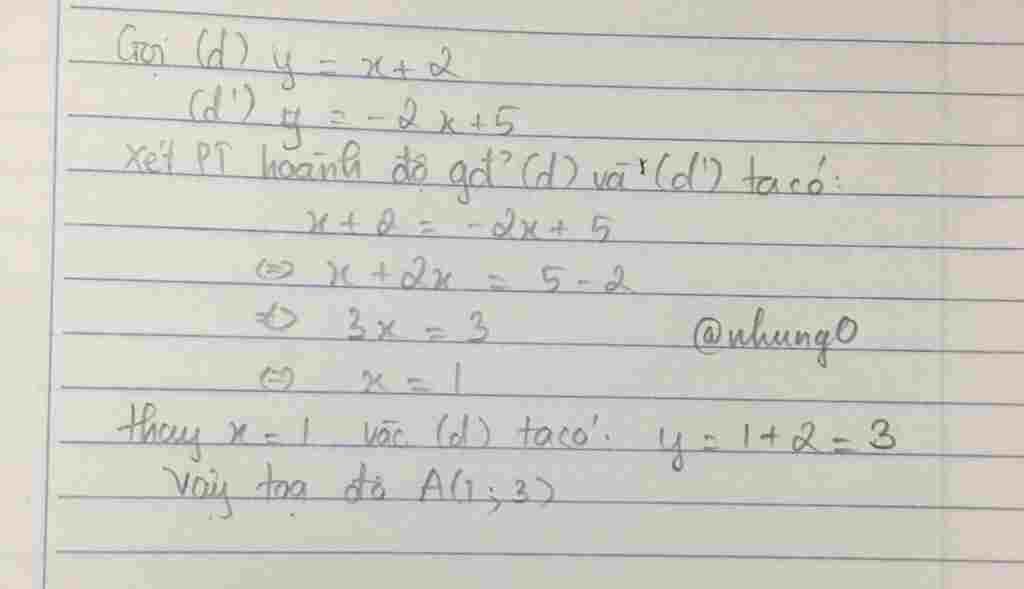 Gọi (d) y = x + 2
(d') y = -2x + 5
Xét PT hoành độ gđ' (d) và (d') ta có:
x + 2 = -2x + 5
⇔ x + 2x = 5 - 2
⇔ 3x = 3
@nhung0
⇔ x = 1
thay x = 1 vào (d) ta có: y = 1 + 2 = 3
Vậy toạ độ A(1; 3)